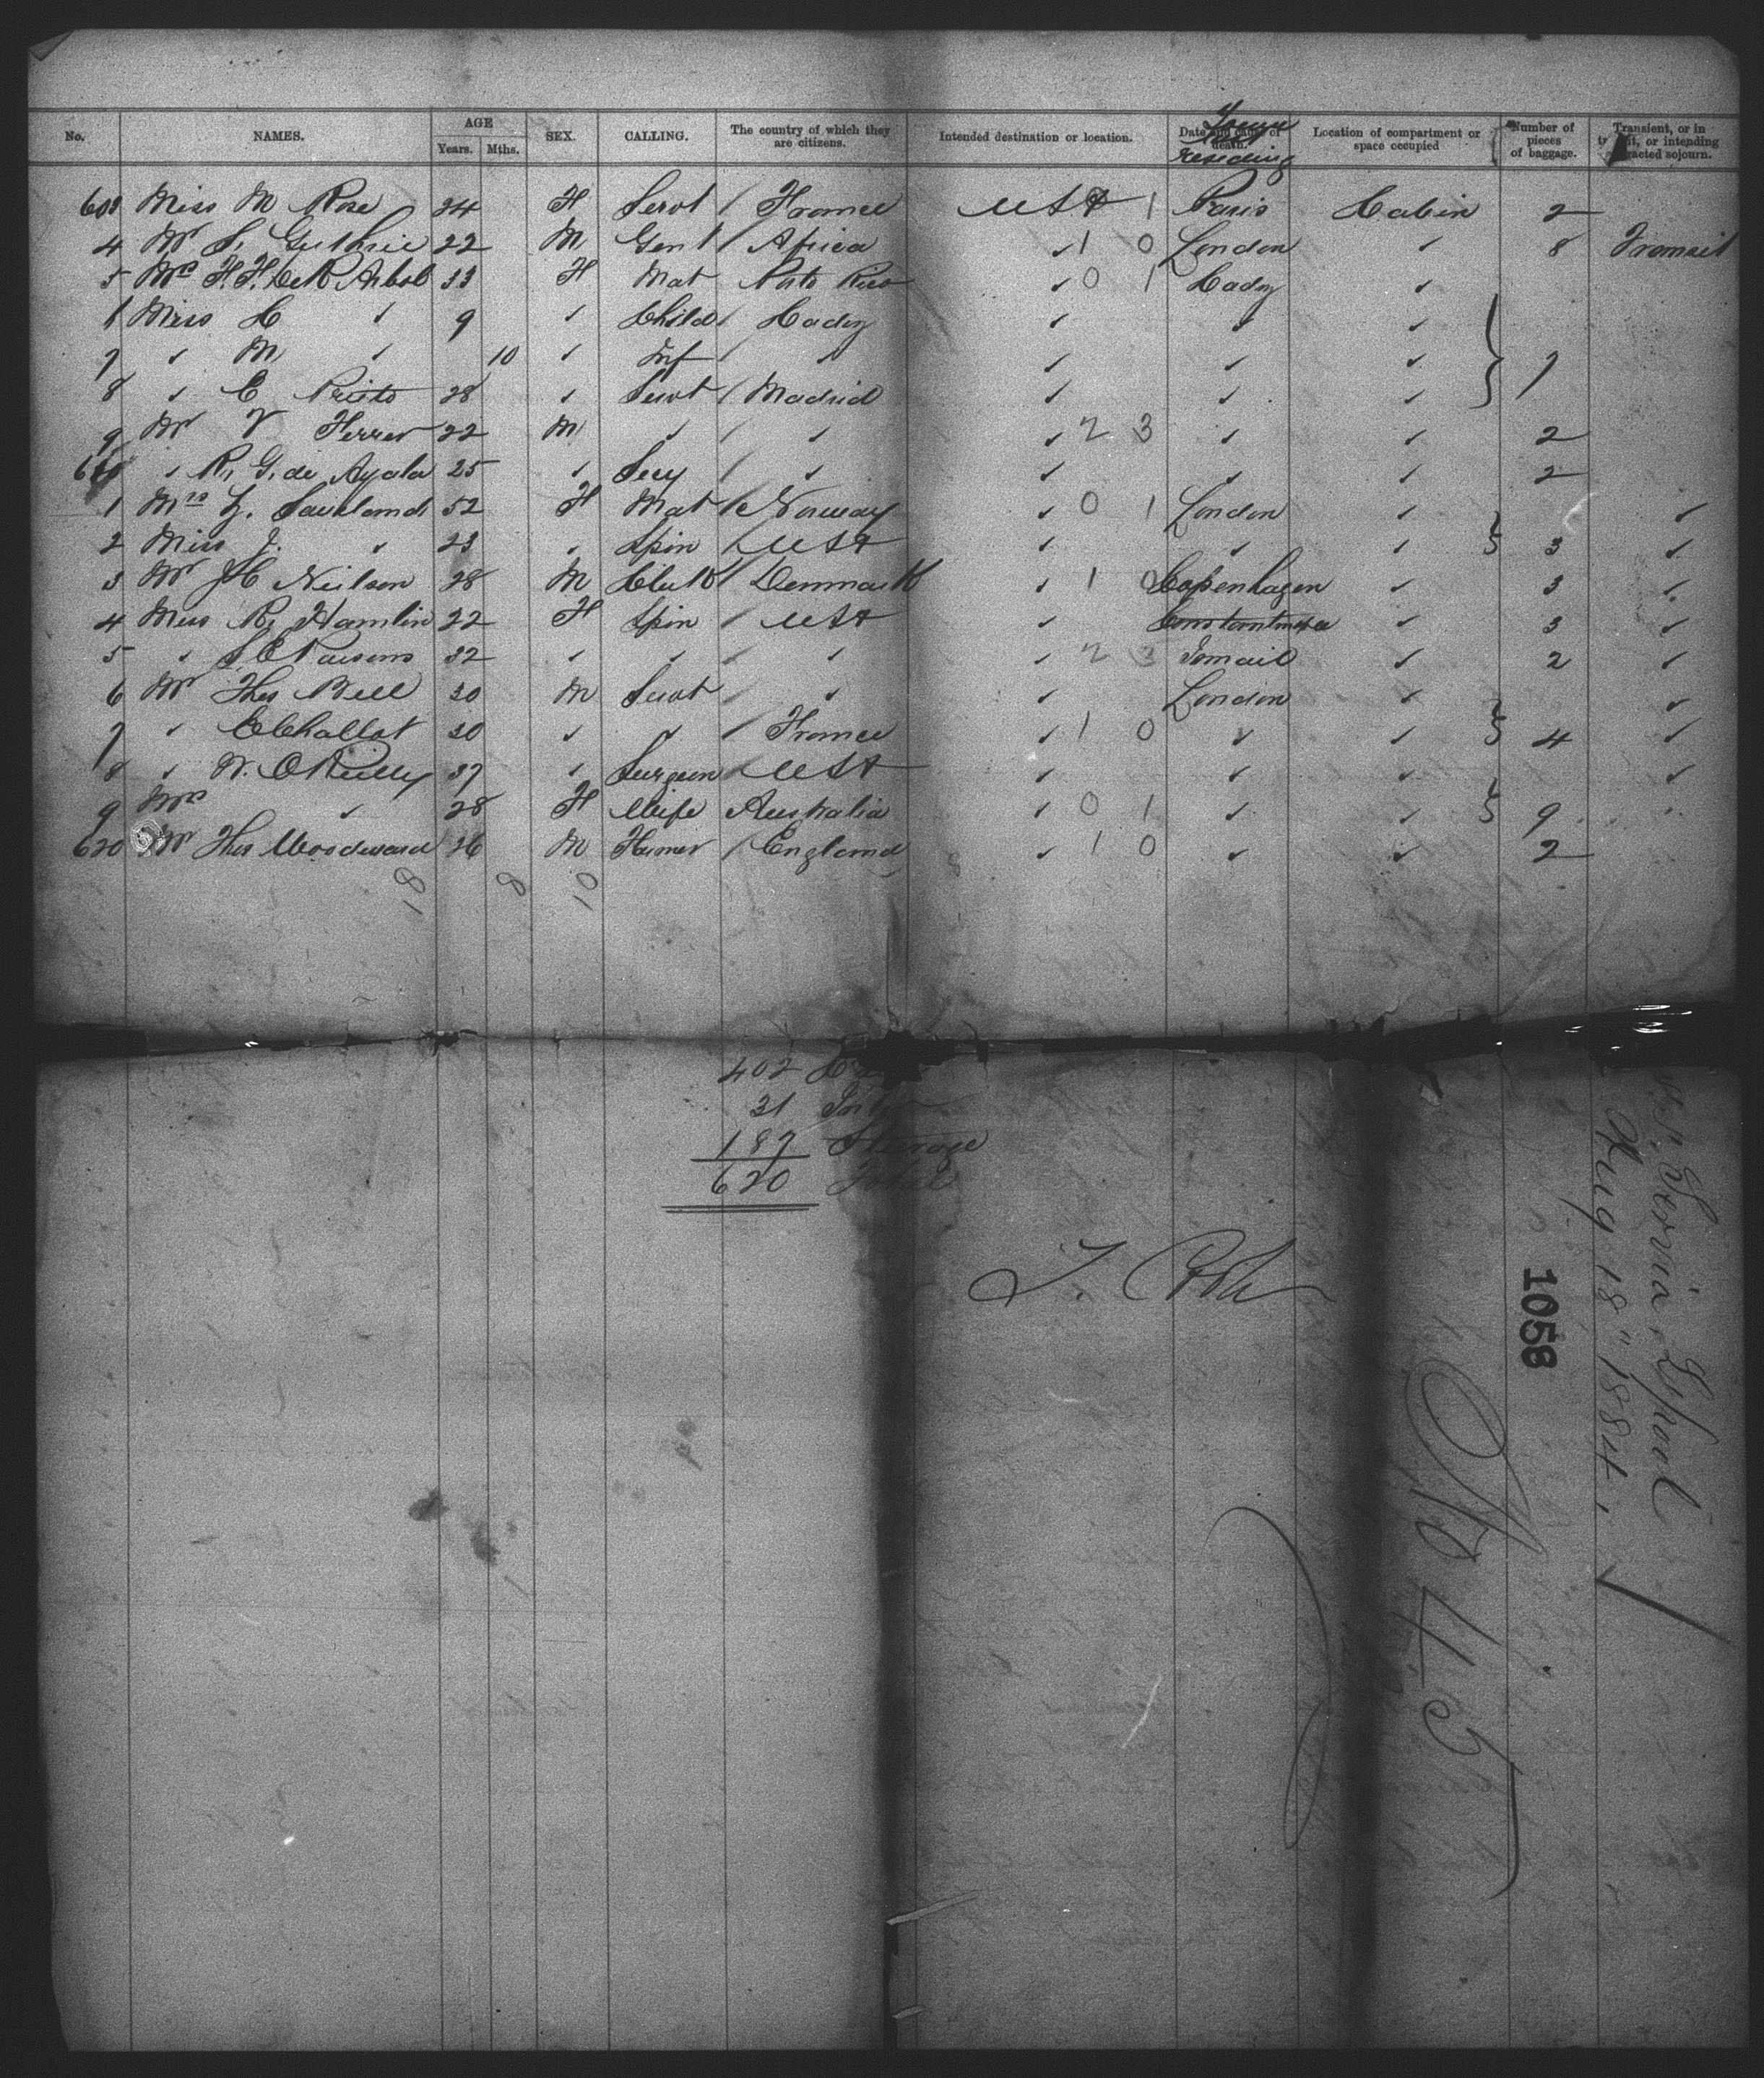 No. NAMES. AGE Years. Mths. SEX. CALLING. The country of which they are citizens. Intended destination or location. Date and cause of death. Town residing Location of compartment or space occupied Number of pieces of baggage. Transient, or in intending sojourn.
603 Miss M Rose 24 F Servt / France USA 1 Paris Cabin 2
4 Mr S. Guthrie 22 M Gent / Africa ✓ 1 0 London ✓ 8 Transit
5 Mrs F.F. de R Arbol 33 F Mat Porto Rico ✓ 0 1 Cadiz ✓
6 Miss C ✓ 9 ✓ Child / Cadiz ✓ ✓ ✓
7 ✓ M ✓ 10 ✓ Inf / ✓ ✓ ✓ ✓ 7
8 ✓ C Pristo 28 ✓ Servt / Madrid ✓ ✓ ✓
9 Mr V Ferrer 22 M ✓ / ✓ ✓ 2 3 ✓ ✓ 2
610 ✓ R. G. de Ayala 25 ✓ Secy / ✓ ✓ ✓ ✓ 2
1 Mrs L. Sauland 52 F Mat / Norway ✓ 0 1 London ✓ ✓
2 Miss J. ✓ 23 ✓ Spin / USA ✓ ✓ ✓ 3 ✓
3 Mr Neilson 28 M Clerk / Denmark ✓ 1 0 Copenhagen ✓ 3 ✓
4 Miss R. Hamlin 22 F Spin / USA ✓ ✓ 3 ✓
5 ✓ S E Parsons 32 ✓ ✓ / ✓ ✓ 2 3 Ismail ✓ 2 ✓
6 Mr Thos Bell 30 M Servt / ✓ ✓ London ✓ ✓
7 ✓ E Challot 30 ✓ ✓ / France ✓ 1 0 ✓ ✓ 4 ✓
8 ✓ W. O'Reilly 37 ✓ Surgeon / USA ✓ ✓ ✓ ✓
9 Mrs ✓ 28 F Wife Australia ✓ 0 1 ✓ ✓ 9
620 Mr Thos Woodward 26 M Farmer / England ✓ 1 0 ✓ ✓ 2
18 8 10
402
31
187 Steerage
620 Total
S.S. Servia L'pool
Aug 18" 1884.
1058
No 45